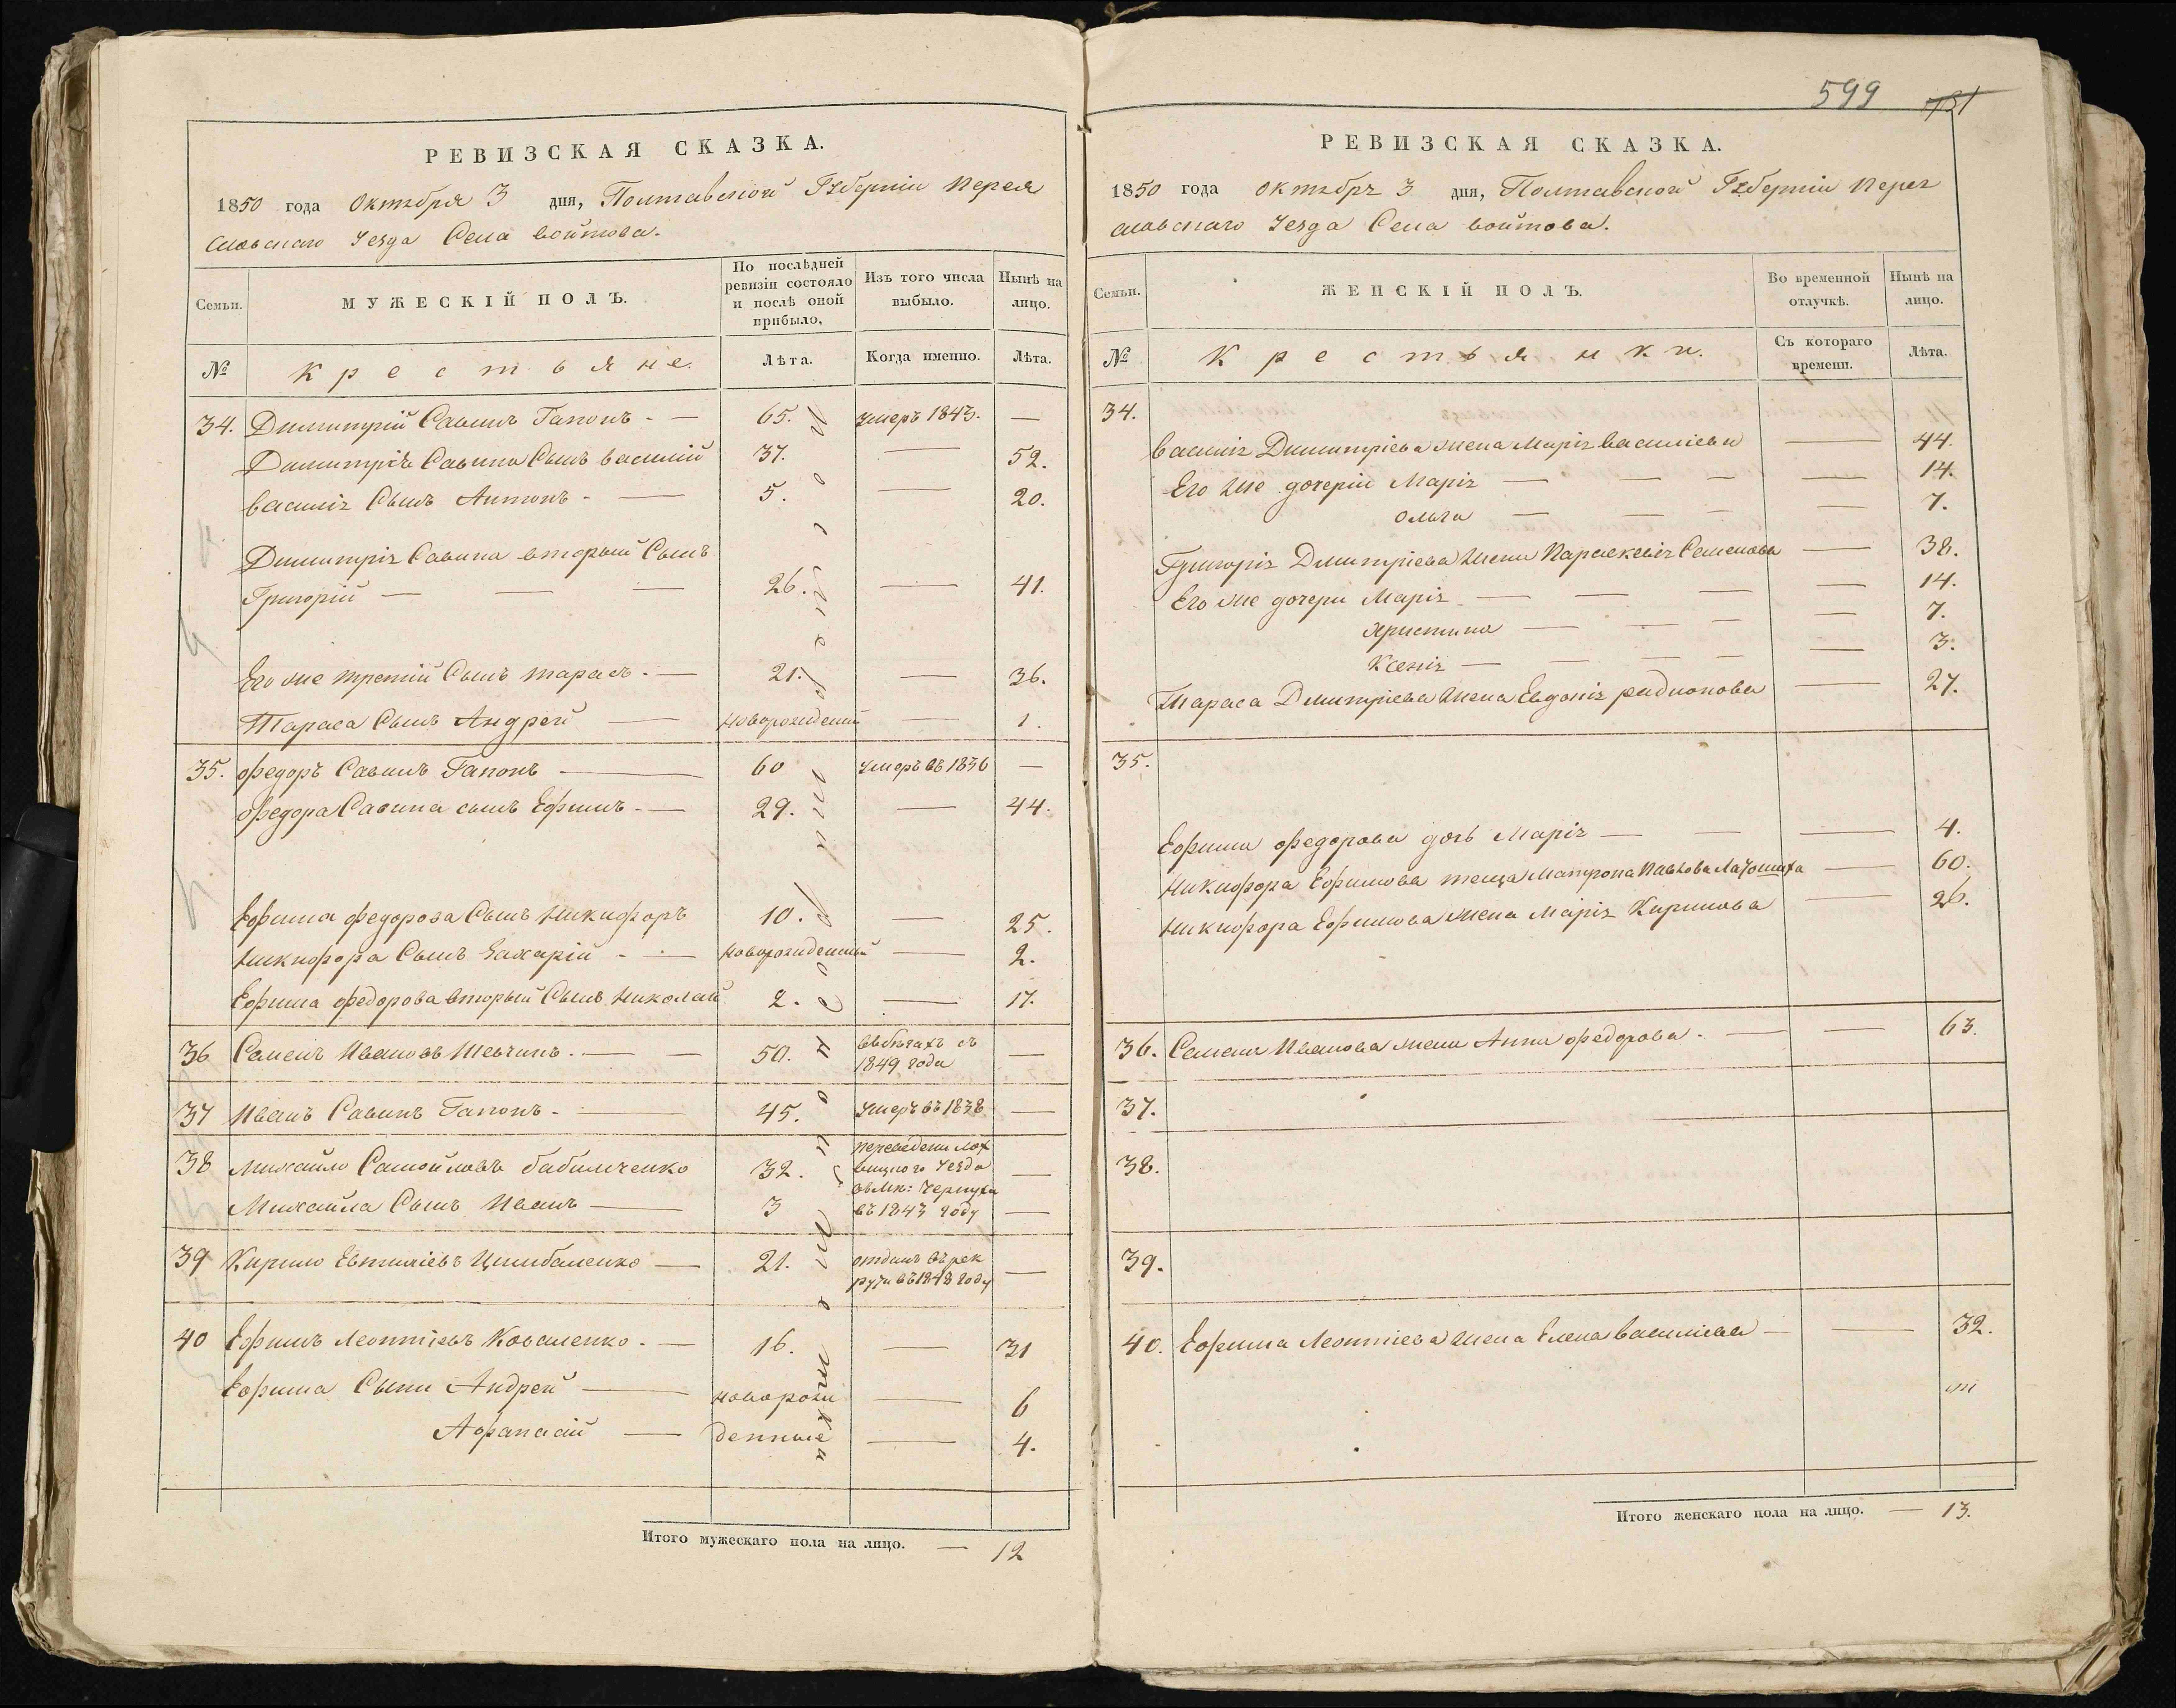 РЕВИЗСКАЯ СКАЗКА.
1850 года Октября 3 дня, Полтавской Губерніи Перея
славскаго Уезда Села войтова.
Семьи.
МУЖЕСКІЙ ПОЛЪ.
По послѣдней ревизіи состояло и послѣ оной прибыло,
Изъ того числа выбыло.
Нынѣ на лицо.
№
Крестьяне.
Лѣта.
Когда именно.
Лѣта.
34. Димитрій Савинъ Гапонъ - — 65. умеръ 1843. —
Димитрія Савина Сынъ василій 37. — 52.
василія Сынъ Антонъ - — 5. — 20.
Димитрія Савина вторый Сынъ
Григорій — — — 26. — 41.
Его же третій Сынъ тарасъ. — 21. — 36.
Тараса Сынъ Андрей — новорожденый 1.
35. федоръ Савинъ Гапонъ — 60 умеръ въ 1836 —
федора Савина сынъ Ефимъ. — 29. — 44.
Ефима федорова Сынъ Никифоръ 10. — 25.
Никифора Сынъ Захарій - — новорожденный — 2.
Ефима федорова вторый Сынъ Николай 2. — 17.
36 Семенъ Ивановъ Шевчинъ. — — 50. въбегахъ съ
1849 года —
37 Иванъ Савинъ Гапонъ - — 45. умеръ въ 1838 —
38 Михайло Самойловъ бабиченко 32. переведени Лох
вицкого Уезда —
въ мк: Чернухи
Михайла Сынъ Иванъ — 3 въ 1843 году —
39 Кирило Евтихіевъ Цимбаленко — 21. отданъ въ рек
рути въ 1848 году —
40 Ефимъ Леонтіевъ Коваленко. — 16. — 31
Ефима Сыни Андрей — новорож — 6
Афанасій — денные — 4.
Итого мужескаго пола на лицо. — 12
599 731
РЕВИЗСКАЯ СКАЗКА.
1850 года октября 3 дня, Полтавской Губерніи Перея
славскаго Уезда Села войтова.
Семьи.
ЖЕНСКІЙ ПОЛЪ.
Во временной отлучкѣ.
Нынѣ на лицо.
№
Крестьянки.
Съ котораго времени.
Лѣта.
34.
василія Димитріева жена Марія василіева — 44.
Его же дочеріи Марія — — — — 14.
Ольга — — — — 7.
Григорія Дмитріева жена Параскевія Семенова — 38.
Его же дочери Марія — — — — 14.
Христина — — — — 7.
Ксенія — — — — — 3.
Тараса Дмитріева жена Евдокія радионова — 27.
35.
Ефима федорова дочь Марія — — — 4.
Никифора Ефимова теща Матрона Павлова — 60.
Никифора Ефимова жена Марія Кирилова — 26.
36. Семена Иванова жена Анна федорова. — — 63.
37.
38.
39.
40. Ефима Леонтіева жена Елена василіева — — 32.
Итого женскаго пола на лицо. — 13.